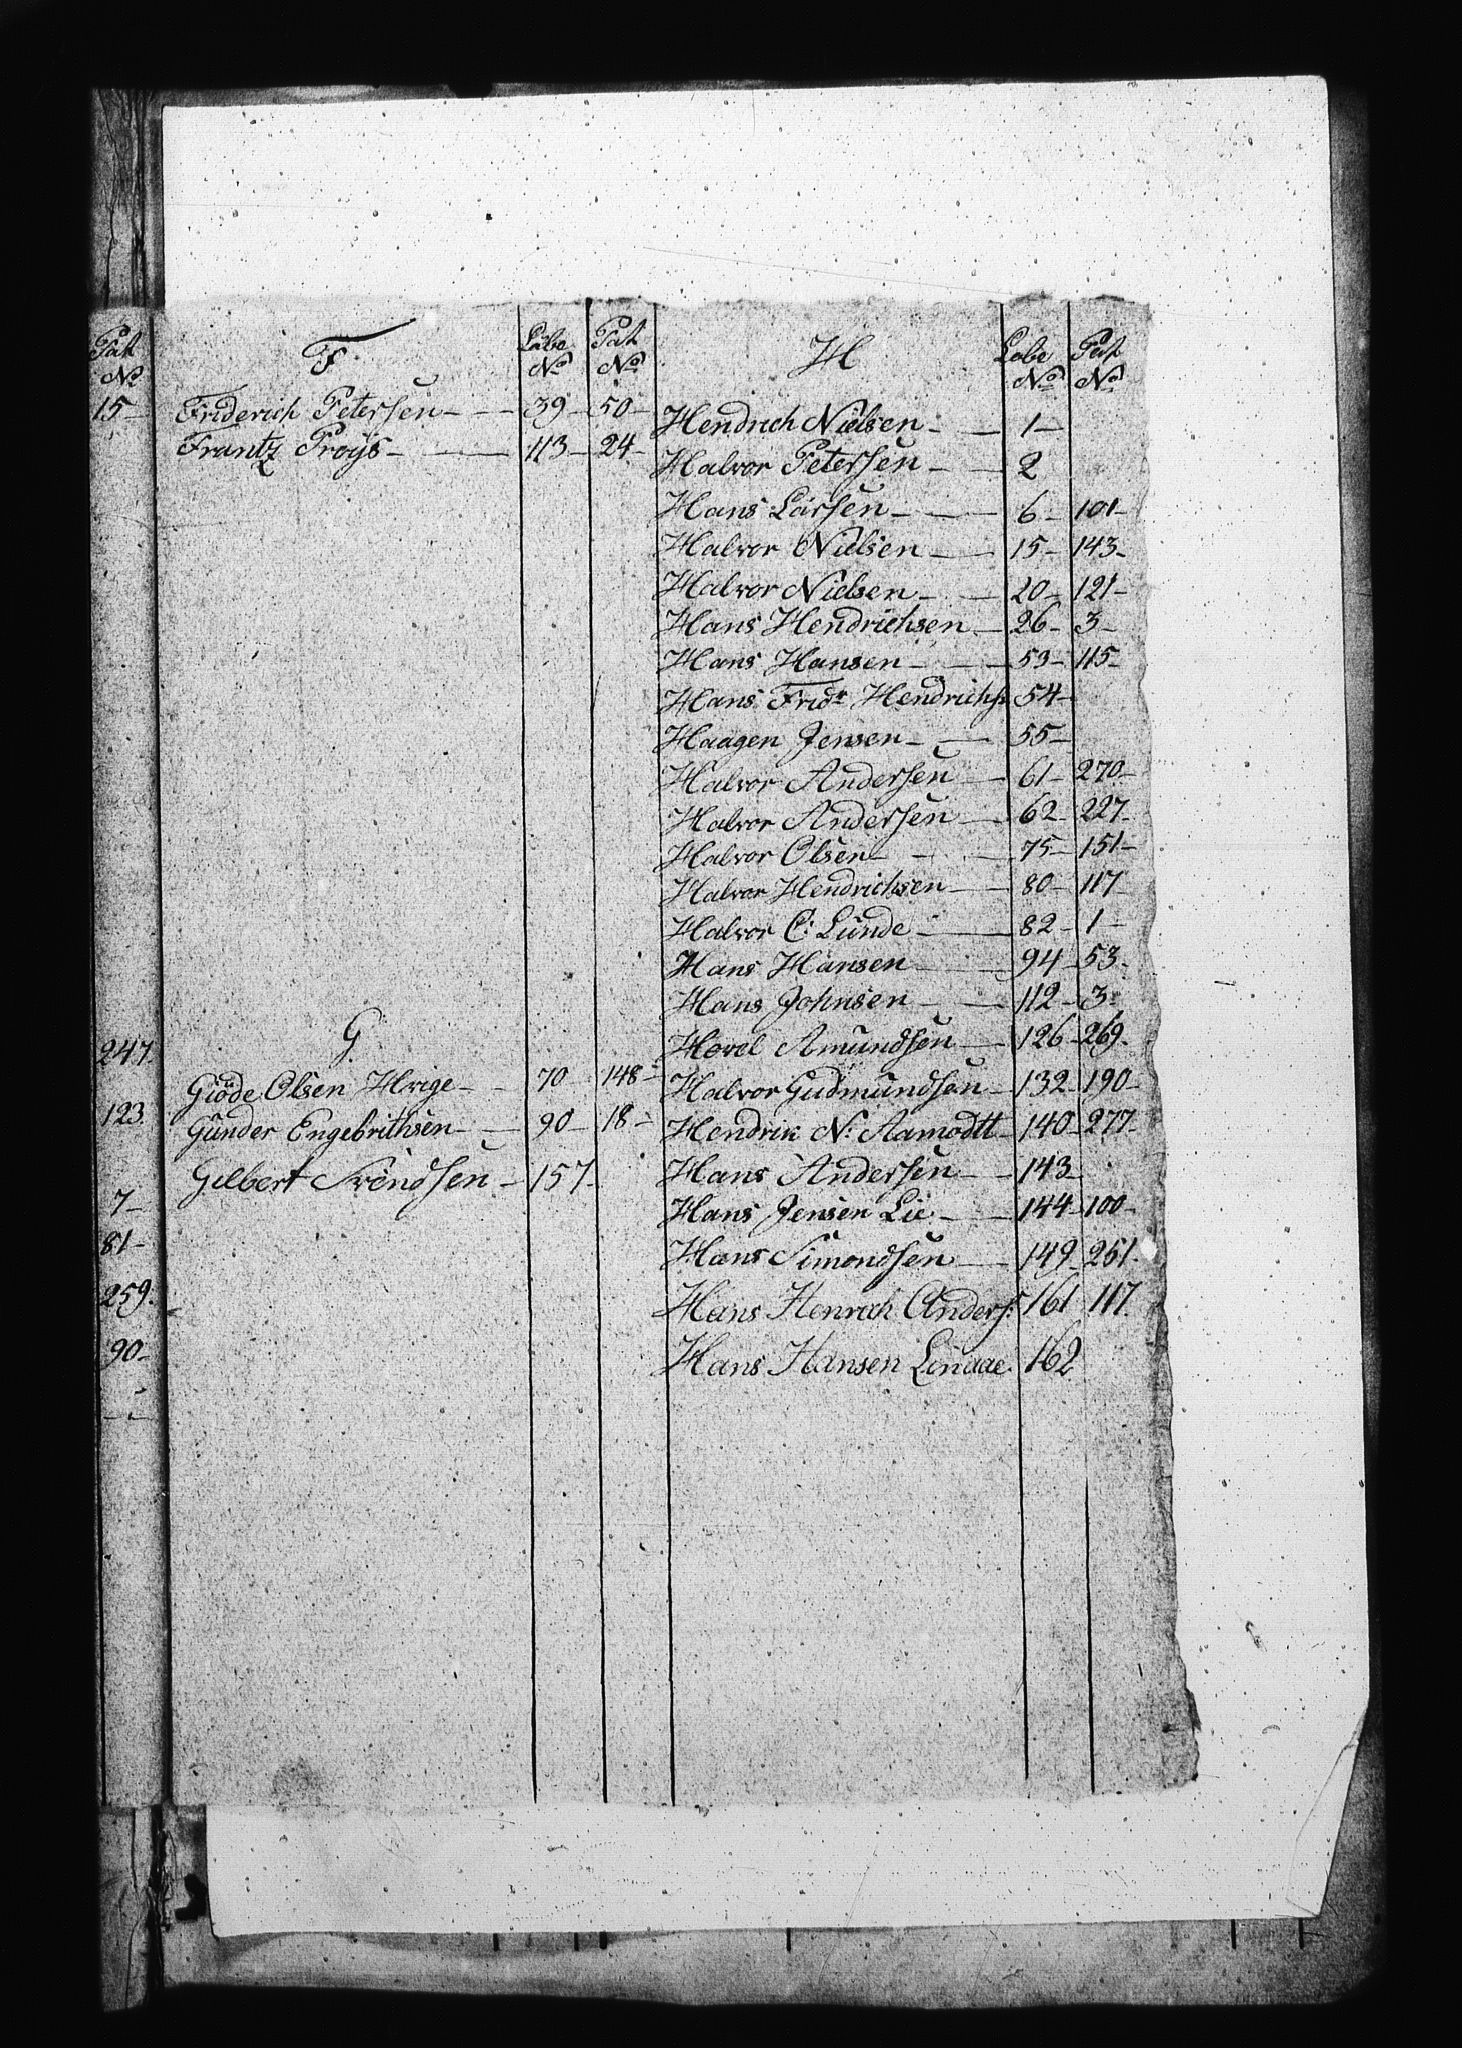 Pat
No
15-
247.
123.
7-
81-
259.
90-
F.
Løbe No Pat No
Friderich Petersen - 39 - 50 -
Frantz Proÿs - 113 - 24 -
G.
Giøde Olsen Hrige - 70 148 -
Gunder Engebrithsen - 90 - 18 -
Gilbert Svendsen - 157 -
H
Løbe No Pat No
Hendrich Nielsen - 1 -
Halvor Petersen - 2
Hans Larsen - 6 - 101 -
Halvor Nielsen - 15 - 143 -
Halvor Nielsen - 20 - 121 -
Hans Hendrichsen - 26 - 3 -
Hans Hansen - 53 - 115 -
Hans Fridr Hendrichs 54 -
Haagen Jensen - 55 -
Halvor Andersen - 61 - 270 -
Halvor Andersen - 62 - 227 -
Halvor Olsen - 75 - 151 -
Halvor Hendrichsen - 80 - 117
Halvor C: Lunde - 82 - 1 -
Hans Hansen - 94 - 53 -
Hans Johnsen - 112 - 3 -
Hovel Amundsen - 126 - 269.
Halvor Gudmundsen - 132 - 190 -
Hendrik N: Aamodtt - 140 - 277 -
Hans Andersen - 143 -
Hans Jensen Lie - 144 - 100 -
Hans Simondsen - 149 - 251 -
Hans Henrich Anders: 161 117.
Hans Hansen Linaae 162